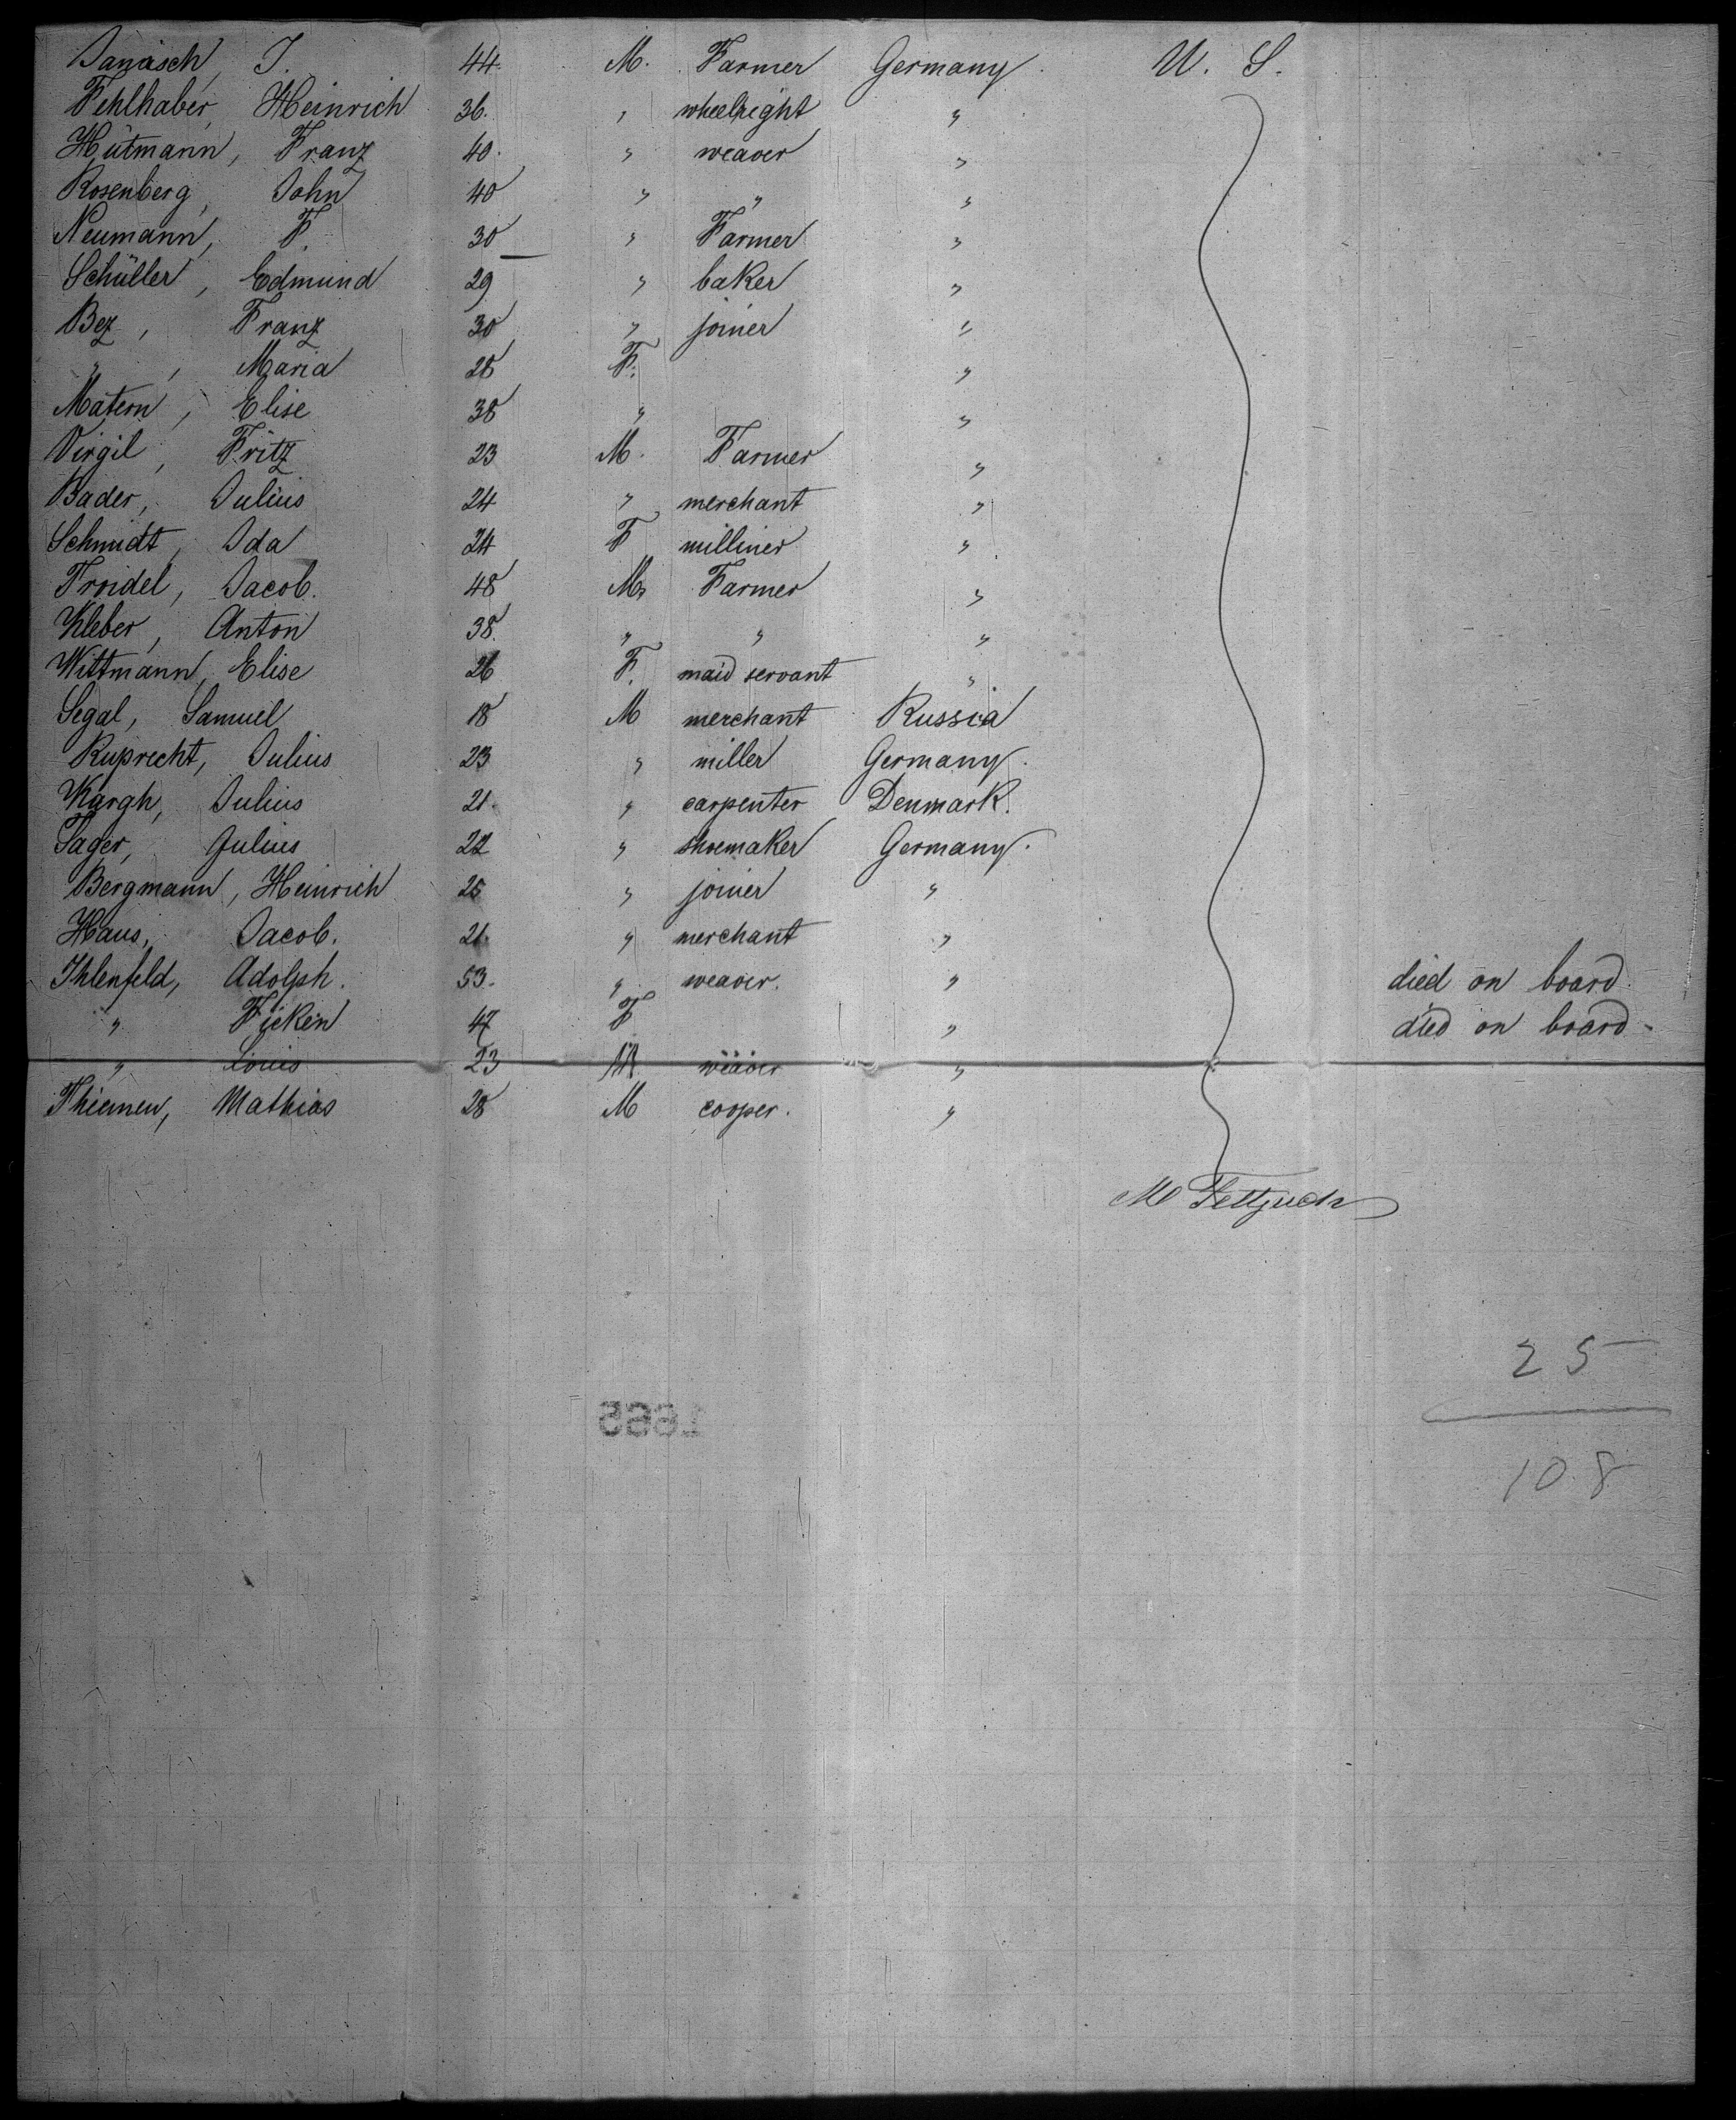 Janaisch, J. 44. M. Farmer Germany. U. S.
Fehlhaber, Heinrich 36. " wheelright "
Hütmann, Franz 40. " weaver "
Rosenberg, John 40 " " "
Neumann, F. 30 " Farmer "
Schüller, Edmund 29 " baker "
Bez, Franz 30 " joiner "
" , Maria 28 F. "
Matern, Elise 38 " "
Virgil, Fritz 23 M. Farmer "
Bader, Julius 24 " merchant "
Schmidt, Ida 24 F milliner "
Troidel, Jacob. 48 M. Farmer "
Kleber, Anton 38. " " "
Wittmann, Elise 26 F. maid servant "
Segal, Samuel 18 M merchant Russia
Ruprecht, Julius 23 " miller Germany.
Kargh, Julius 21. " carpenter Denmark.
Sager, Julius 22 " shoemaker Germany.
Bergmann, Heinrich 25 " joiner "
Haus, Jacob. 21. " merchant "
Ihlenfeld, Adolph. 53. " weaver. " died on board.
" Ficken 47 F " died on board -
" Louis 23 M weaver "
Thiemen, Mathias 28 M cooper. "
25
1665
108